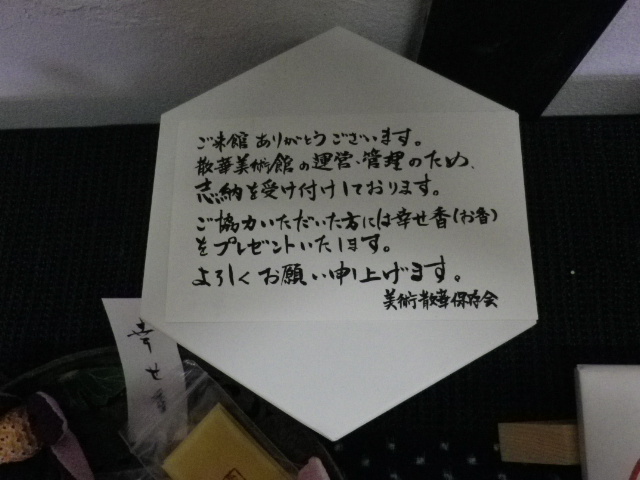 ご来館ありがとうございます。
散華美術館の運営、管理のため、
志納を受け付けしております。
ご協力いただいた方には幸せ香(お香)
をプレゼントいたします。
よろしくお願い申し上げます。
美術散華保存会
幸せ香